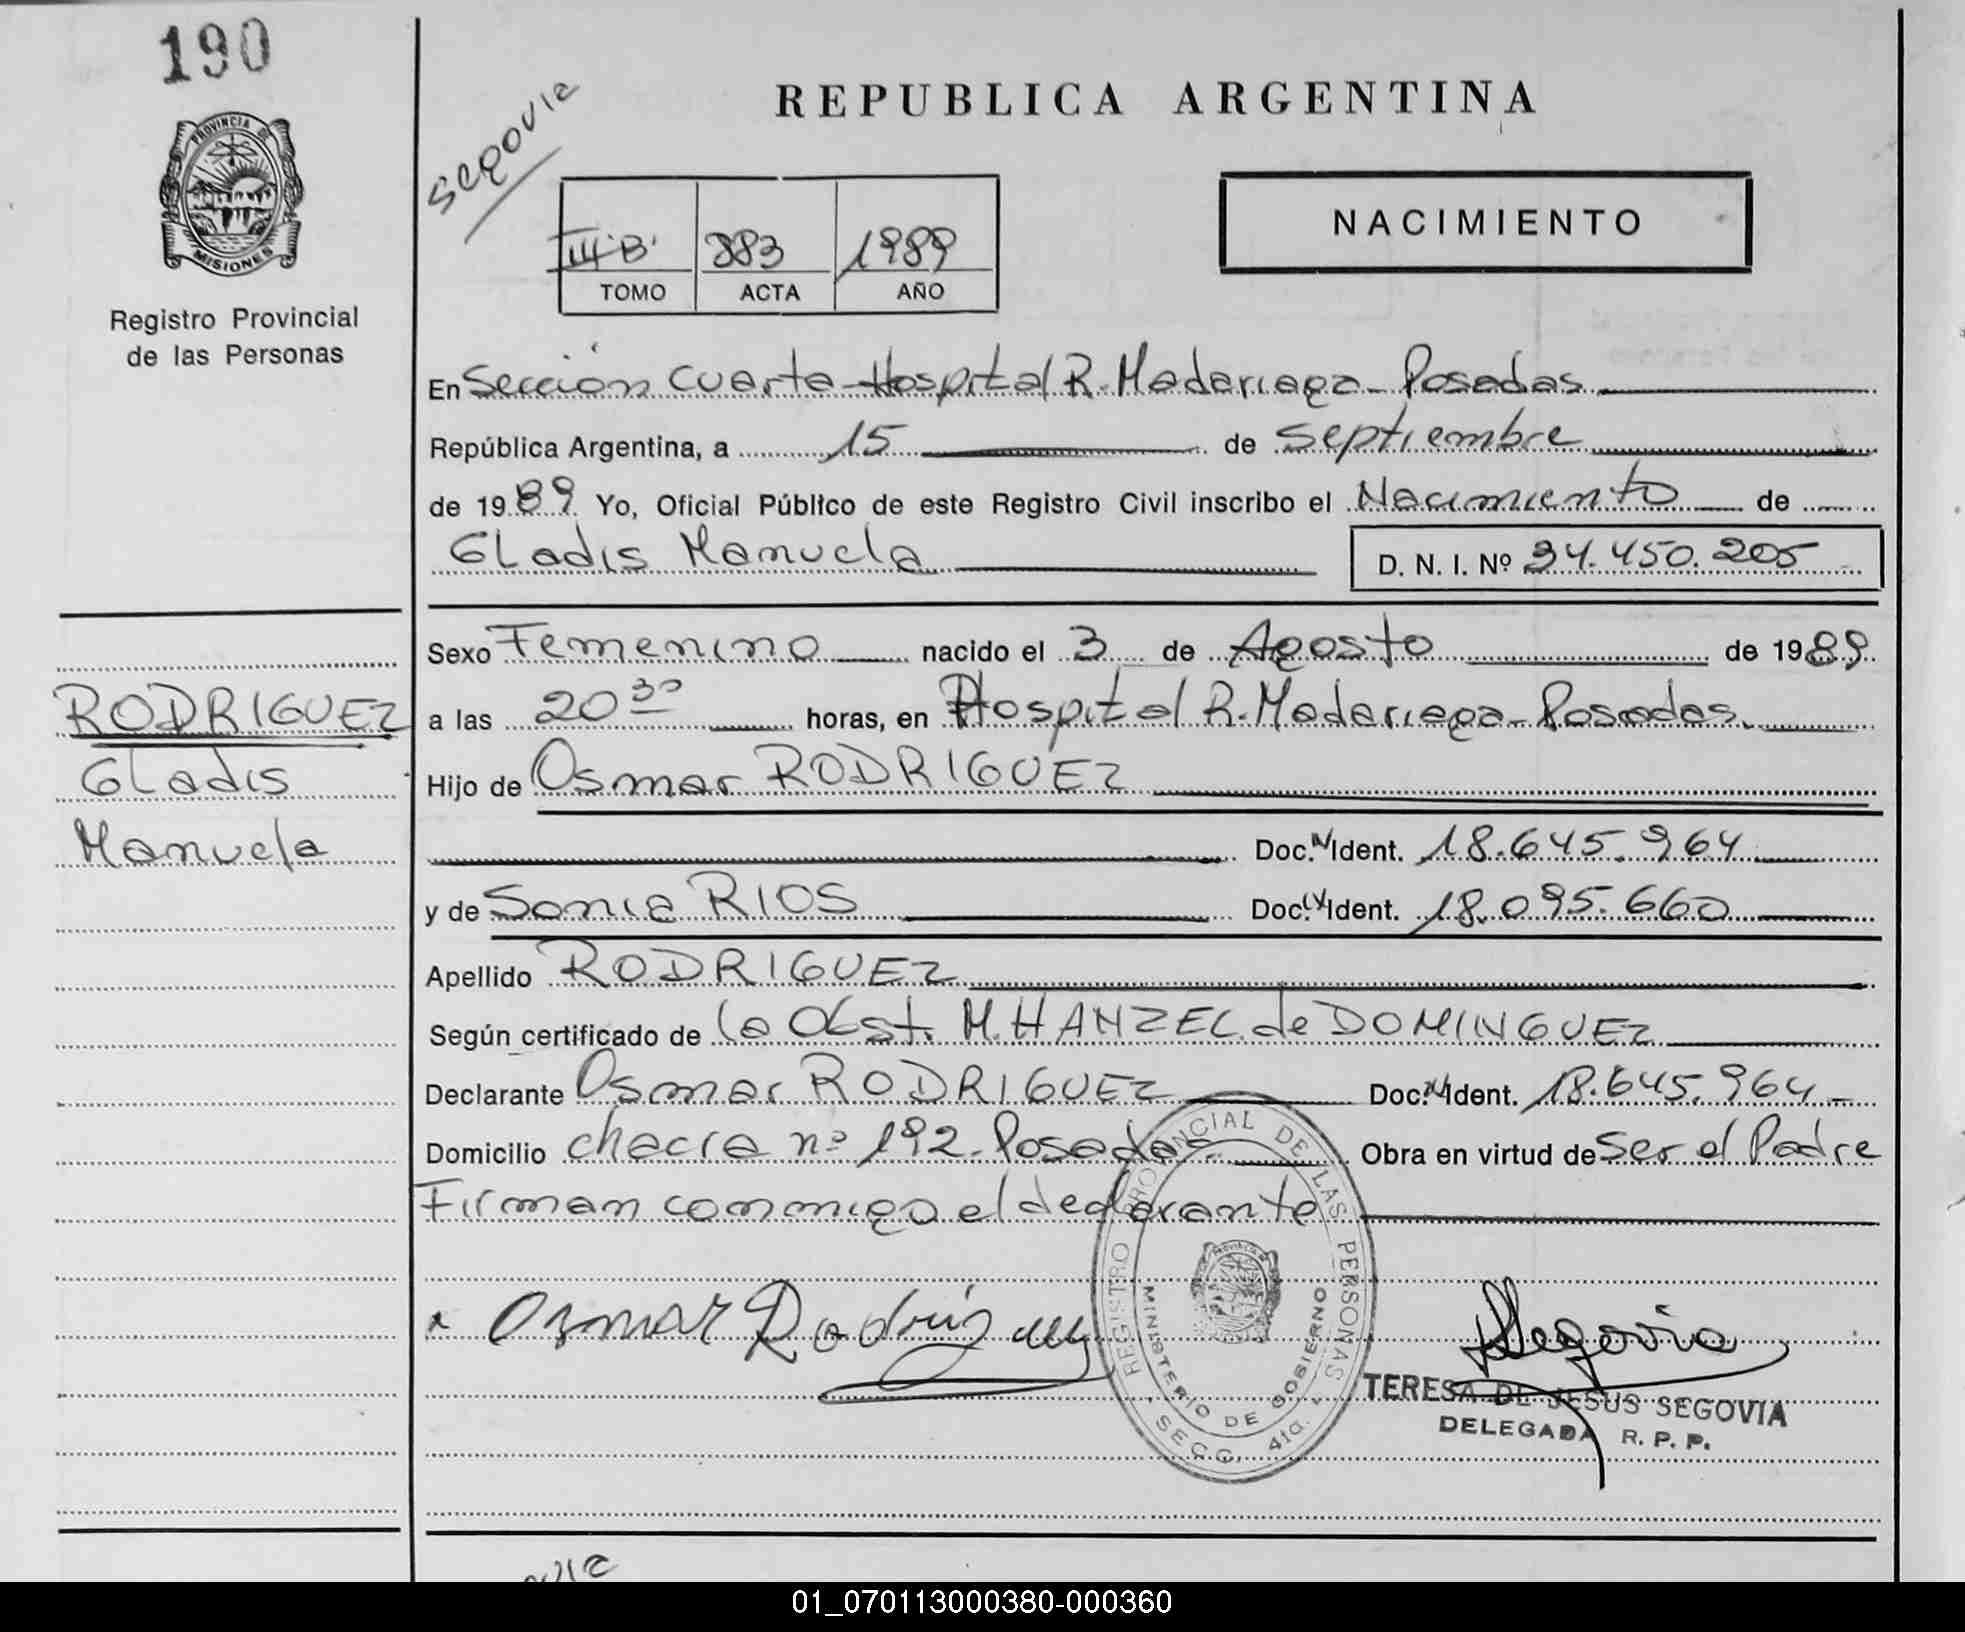 190
Segovia
REPUBLICA ARGENTINA
PROVINCIA DE
MISIONES
Registro Provincial
de las Personas
III "B" 883 1989
TOMO ACTA AÑO
NACIMIENTO
En Sección Cuarta - Hospital R. Madariaga - Posadas
República Argentina, a 15 de Septiembre
de 1989 Yo, Oficial Público de este Registro Civil inscribo el Nacimiento de
Gladis Manuela D. N. I. Nº 34.450.205
Sexo Femenino nacido el 3 de Agosto de 1989
a las 20 30 horas, en Hospital R. Madariaga - Posadas.
Hijo de Osmar RODRIGUEZ
Doc. N Ident. 18.645.964
y de Sonia RIOS Doc. Ident. 18.095.660
Apellido RODRIGUEZ
Según certificado de la Obst. M. HANZEL de DOMINGUEZ
Declarante Osmar RODRIGUEZ Doc. N Ident. 18.645.964
Domicilio chacra nº 192 - Posadas Obra en virtud de Ser el Padre
Firman conmigo el declarante
RODRIGUEZ
Gladis
Manuela
Osmar Rodriguez
REGISTRO PROVINCIAL DE LAS PERSONAS
MINISTERIO DE GOBIERNO
SECC. 4ta.
Segovia
TERESA DE JESUS SEGOVIA
DELEGADA R. P. P.
01_070113000380-000360